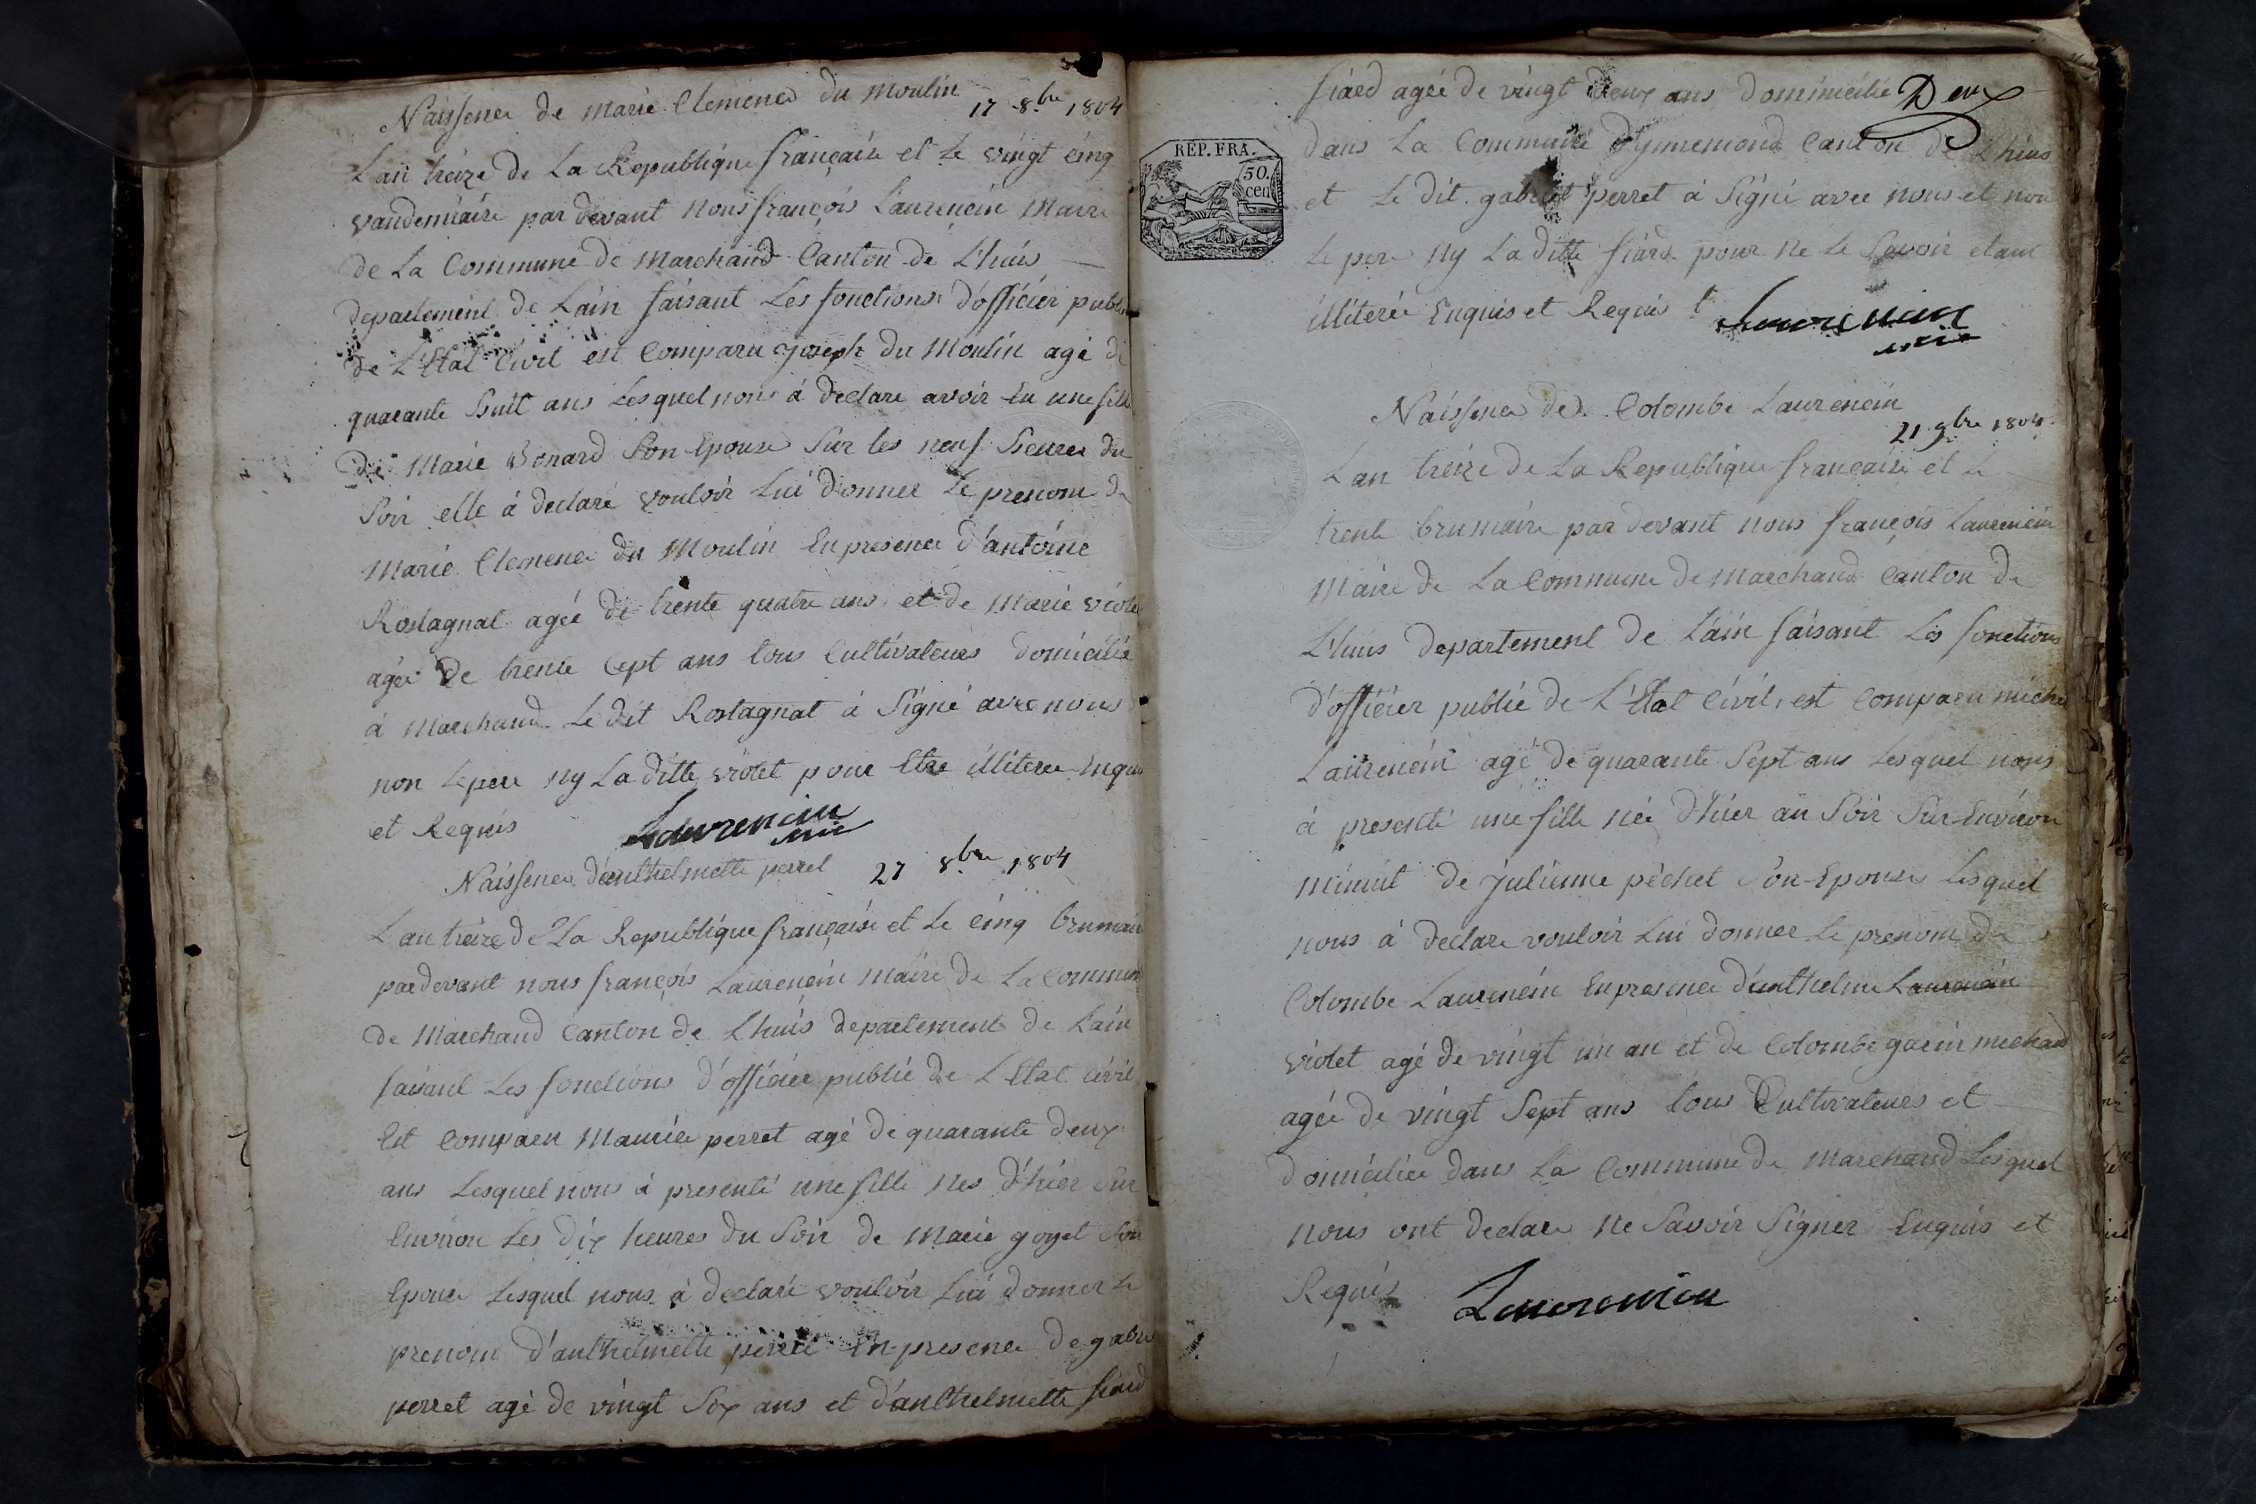 Naissence de marie Clemence du moulin
17 8bre 1804
L'an treize de La Republique française et Le vingt cinq
vandemiaire par devant nous françois Laurencin maire
de La Commune de marchand Canton de L'huis
departement de Lain faisant Les fonctions d'officier public
de L'Etat Civil est Comparu joseph du moulin agé de
quarante huit ans Lesquel nous à declare avoir Eu une fille
de marie Bonard Son Epouse Sur les neuf heures du
Soir elle à declaré vouloir Lui donner Le prenom de
marie Clemence du moulin En presence d'antoine
Rostagnat agée de trente quatre ans et de marie violet
agée de trente Cept ans tous Cultivateurs domicilié
à marchand Le dit Rostagnat à Signé avec nous
non Le pere ny La ditte violet pour Etre illiteree Enquis
et Requis Laurencin
mre
Naissence d'anthelmette perret 27 8bre 1804
L'an treize de La Republique française et Le cinq brumaire
pardevant nous françois Laurencin maire de La Commune
de marchand Canton de L'huis departement de Lain
faisant Les fonctions d'officier public de L'Etat Civil
Est Comparu maurice perret agé de quarante deux
ans Lesquel nous à presenté une fille nes d'hier Sur
Environ Les dix heures du Soir de marie goyet Son
Epouse Lesquel nous à declaré vouloir Lui donner Le
prenom d'anthelmette perret En presence de gabriel
perret agé de vingt Six ans et d'anthelmette fiard
fiard agée de vingt deux ans domiciliée
Deux
dans La Commune d'ynnemond Canton de L'huis
REP. FRA.
50.
cen
et Le dit gabriel perret à Signé avec nous et non
Le pere ny La ditte fiard pour ne Le Savoir etant
illiterée Enquis et Requis Laurencin
mre
Naissence de Colombe Laurencin
21 9bre 1804
L'an treize de La Republique française et Le
trente brumaire par devant nous françois Laurencin
maire de La Commune de marchand Canton de
L'huis departement de L'ain faisant Les fonctions
d'officier public de L'Etat Civil, est Comparu michel
Laurencin agé de quarante Sept ans Lesquel nous
à presenté une fille née d'hier au Soir Sur Environ
minuit de julienne pèchet Son Epouse Lesquel
nous à declare vouloir Lui donner Le prenom de
Colombe Laurencin En presence d'anthelme Laurencin
violet agé de vingt un an et de Colombe garin michaud
agée de vingt Sept ans tous Cultivateurs et
domiciliée dans La Commune de marchand Lesquel
nous ont declare ne Savoir Signer Enquis et
Requis Laurencin